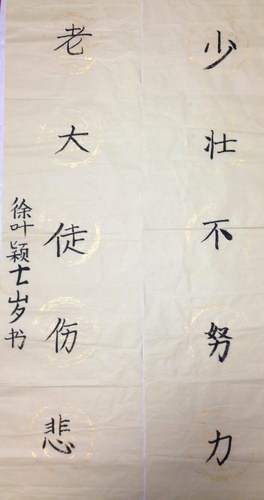 少壮不努力
老大徒伤悲
徐叶颖七岁书